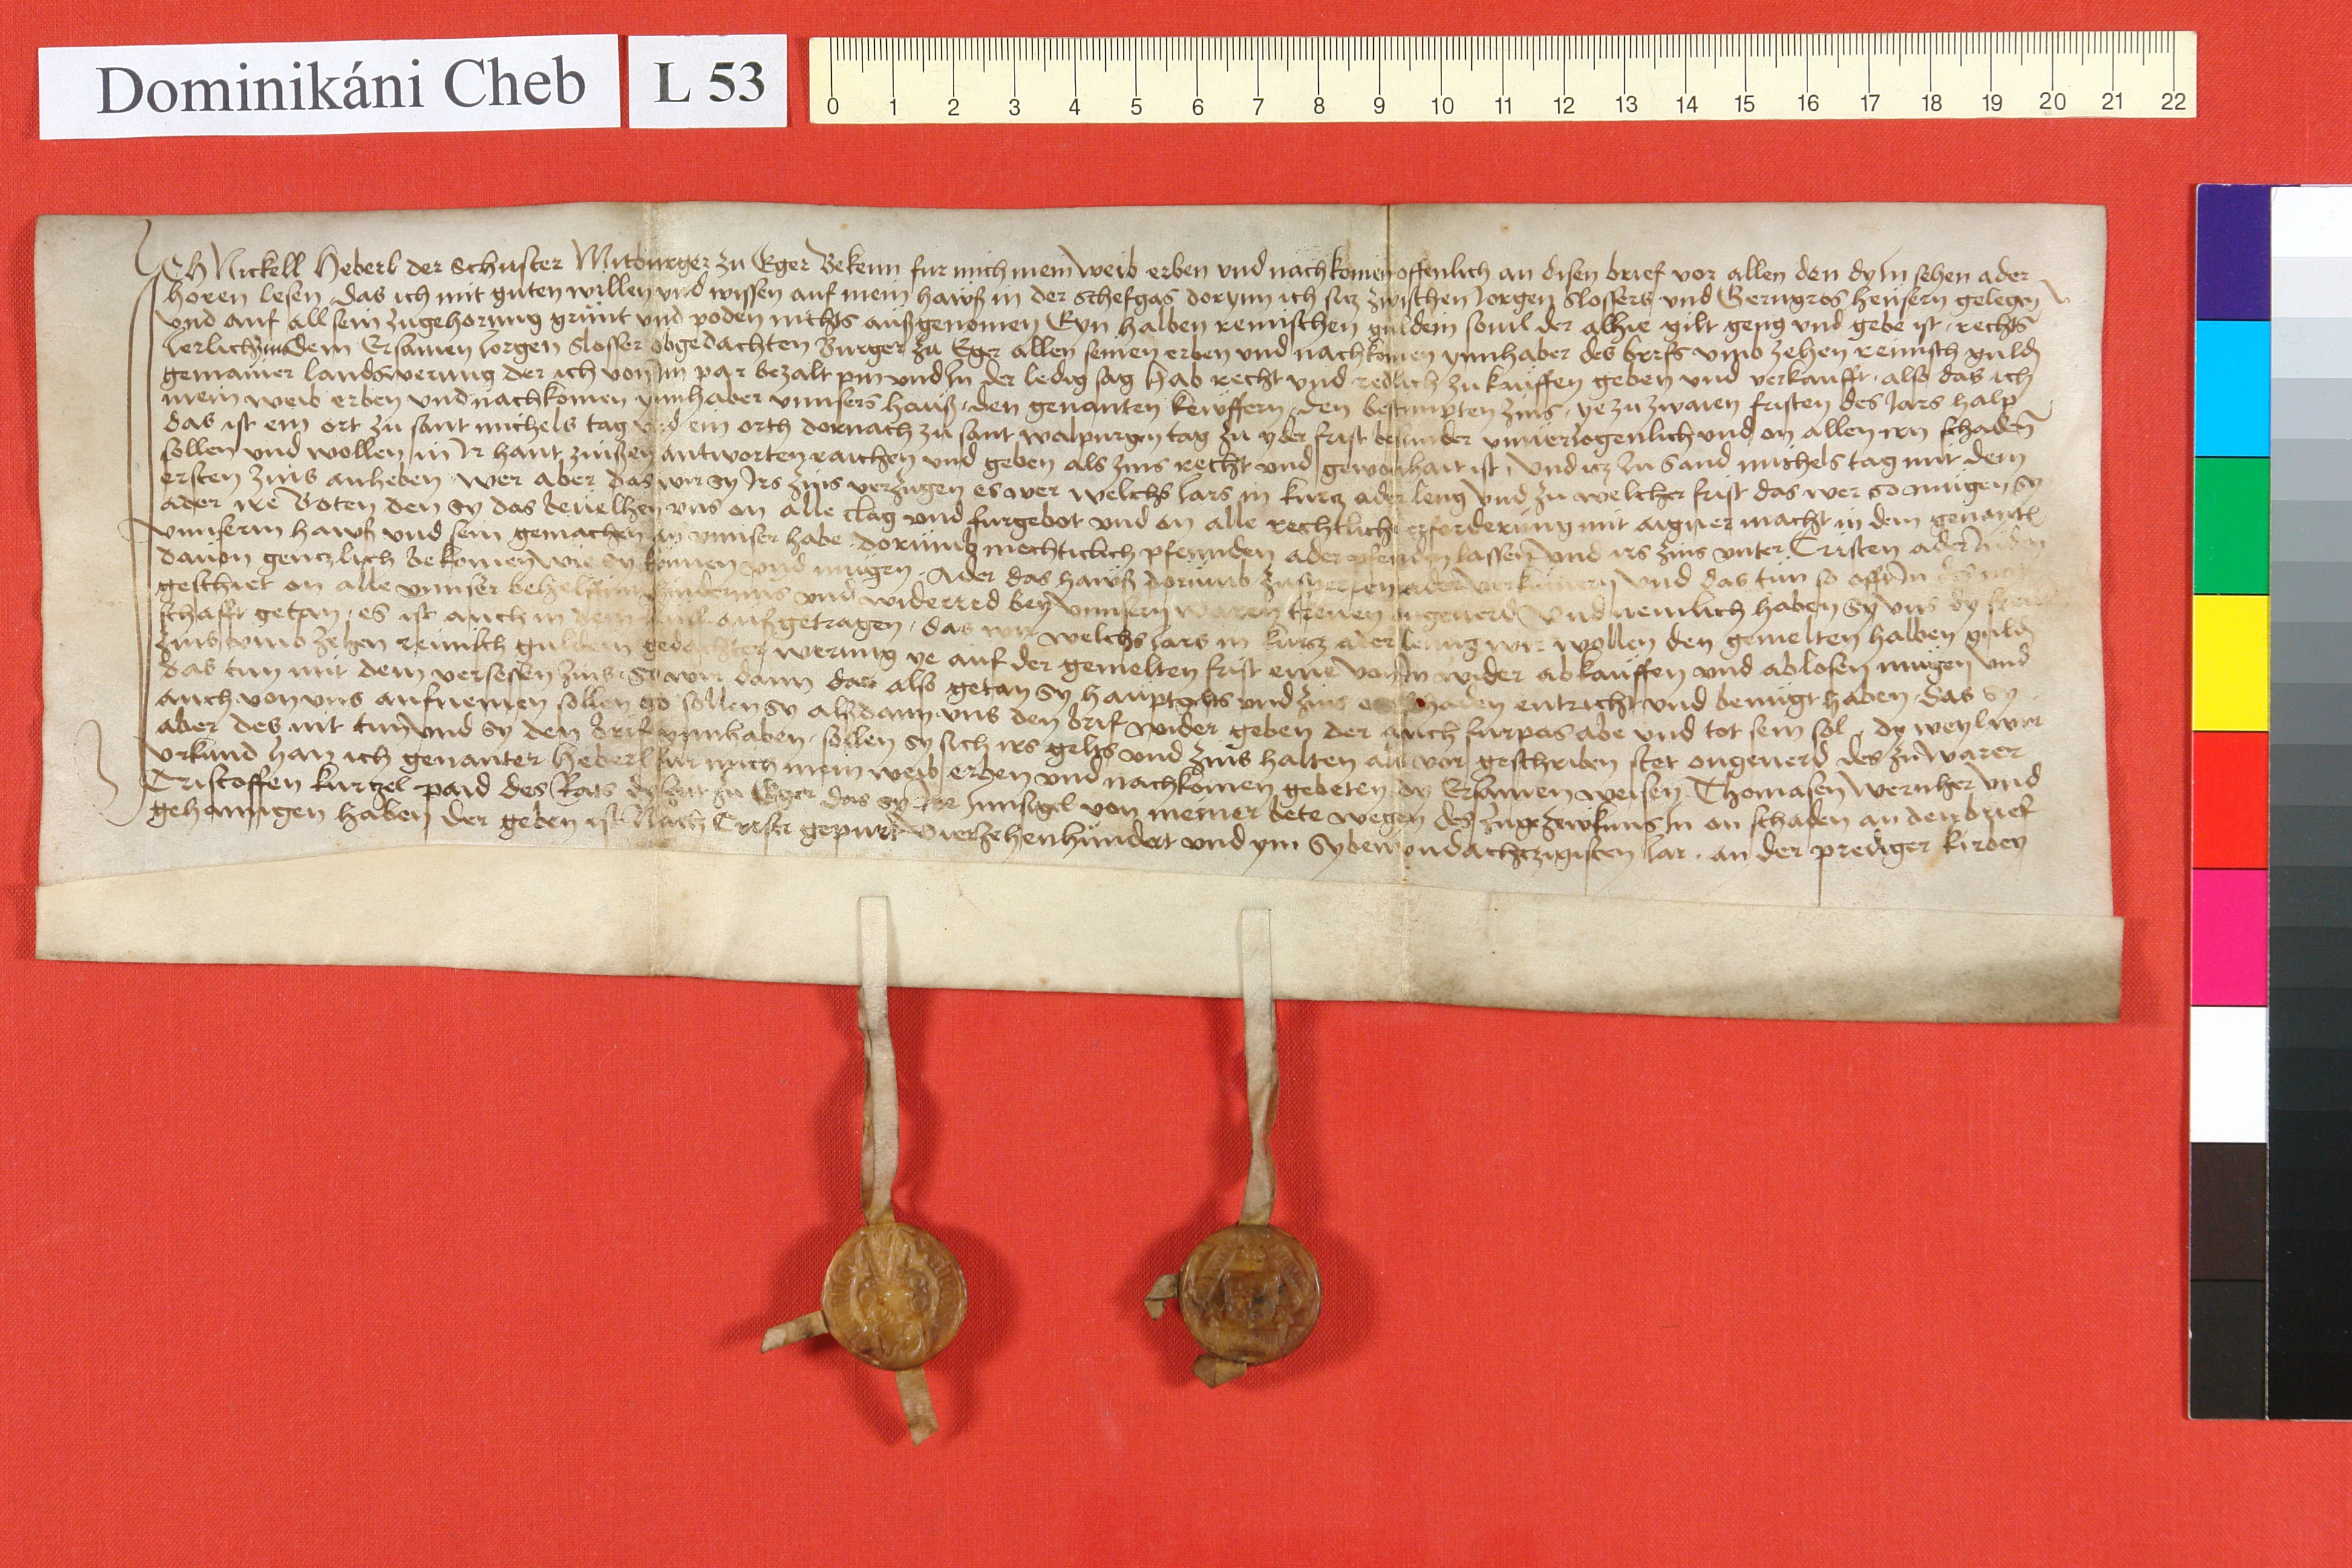 Dominikáni Cheb
L 53
0 1 2 3 4 5 6 7 8 9 10 11 12 13 14 15 16 17 18 19 20 21 22
Ich Nickell Heberl der Schuster Mitburger zu Eger Bekenn fur mich mein weib erben und nachkomen offenlich an disen brief vor allen den dy In sehen ader
horen lesen das ich mit guten willen und wissen auf mein hawß in der schefgas dorynn ich sitz zwischen Jorgen slossers und Gerngros heusern gelegen
und auf all sein zugehorung grunt und poden nichts außgenomen Eyn halben remischen guldein sovil der alhie gilt geng und gebe ist rechts
Jerlichs dem Ersamen Jorgen Slosser obgedachten Burger zu Eger allen seinen erben und nachkomen ynnhaber des brifs umb zehen reinisch guld
gemainer landswerung der ich von im par bezalt pin und In der ledig sag Hab recht und redlich zu kauffen geben und verkaufft also das ich
mein weib erben und nachkomen ynnhaber unnsers hauß den genanten kewffern den bestimpten zins ye zu zwaien fristen des Jars halp
das ist ein ort zu sant michels tag und ein orth dornach zu sant walpurgen tag zu yder frist besunder unverzogenlich und on allen irn schaden
sollen und wollen in Ir hant zinßen antworten raichen und geben als zins recht und gewonhait ist und itz zu sand michels tag mit dem
ersten zins anheben wer aber das wir sy Irs zins verzugen es wer welchs Jars in kurtz ader leng und zu welcher frist das wer so mugen sy
ader ire Boten den sy das bevelhen uns on alle clag und furgebot und on alle rechtliche erforderung mit aigner macht in dem genant
unnserm hawß und sein gemachen in unnser habe dorumb mechticlich pfennden ader pfenden lassen und irs zins unter Cristen ader Juden
davon gentzlich bekomen wie sy konnen und mugen Ader das hawß dorumb zusperren ader verkumern und das tun so offt In des
geschiet on alle unnser behelffung hindernus und widerred bey unnsern waren trewen ongeverd Und nemlich haben sy uns dy
schafft getan es ist auch in dem kauff außgetragen das wir welchs Jars in kurtz ader leng wir wollen den gemelten halben guld
zins umb zehen reinisch guldein gedachter werung ye auf der gemelten frist eine von In wider abkauffen und ablosen mugen und
das tun mit dem versessen zins So wir dann das also getan sy hauptgelts und zins on schaden entricht und benugt haben das sy
auch von uns aufnemen sollen so sollen sy alsdann uns den brif wider geben der auch furpas abe und tot sein sol dy weyl wir
aber des nit tun und sy den brif ynnhaben sollen sy sich irs gelts und zins halten als vor geschriben stet ongeverd des zu warer
Urkund han ich genanter Heberl fur mich mein weib erben und nachkomen gebeten dy Ersamen weisen Thomasen Wernher und
Cristoffen kurtzel paid des Rats zu Eger das sy Ire Innsigel von meiner bete wegen des zugezewknus In on schaden an den brief
gehanngen haben Der geben ist Nach Cristi gepurt Vierzehenhundert und ym Sybenundachtzigisten Jar an der prediger kirbey